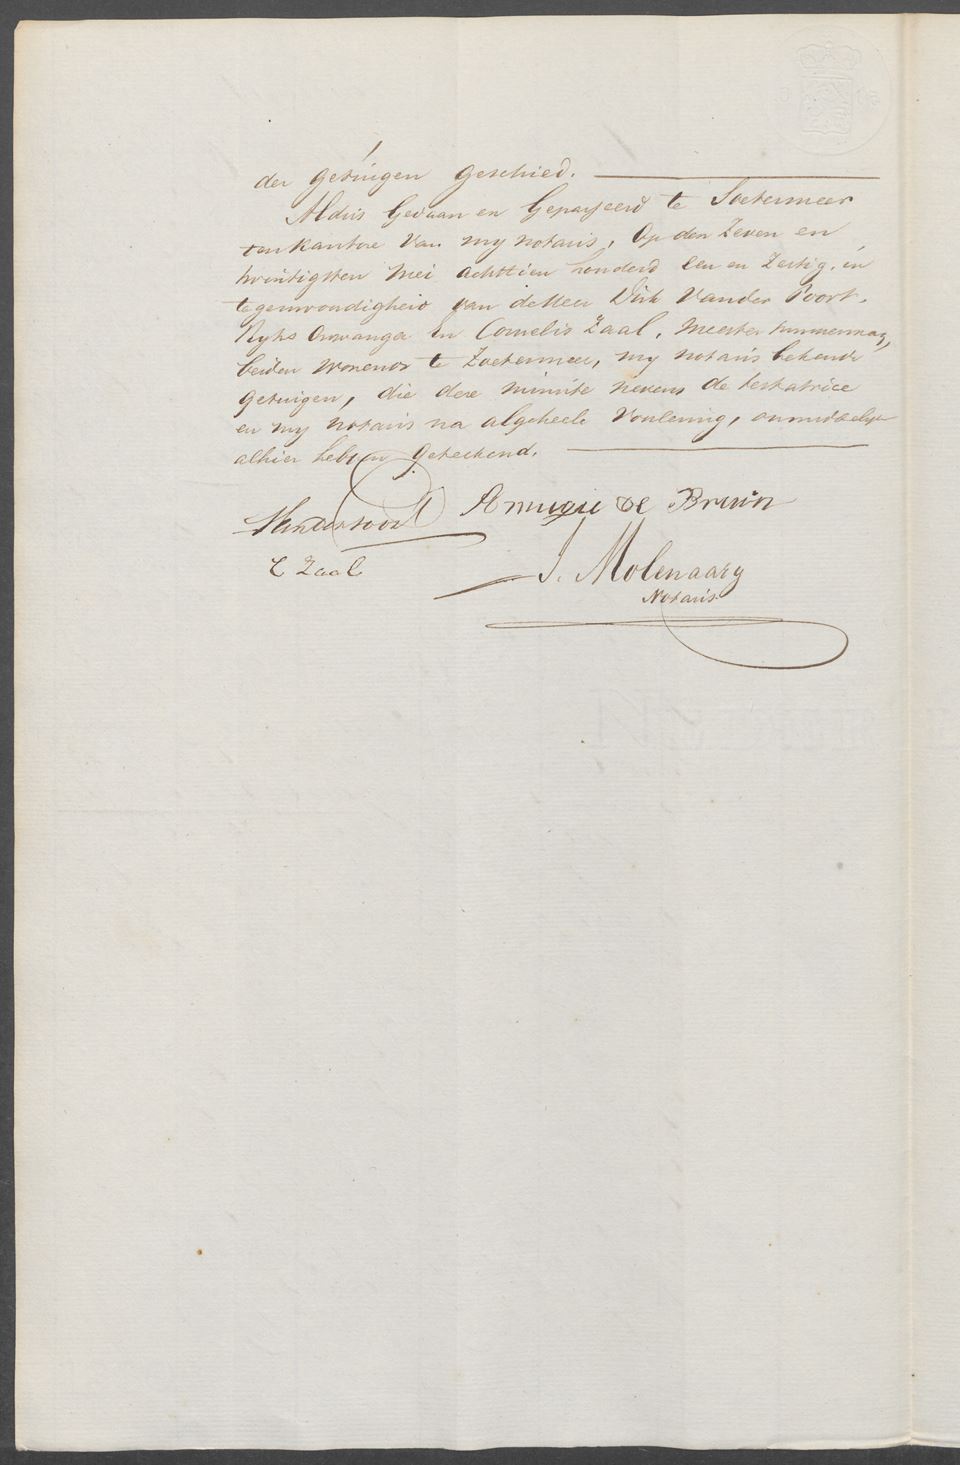 der getuigen geschied.
Aldus Gedaan en Gepasseerd te Soetermeer
ten kantore van my notaris, Op den Zeven en
twintigsten Mei achttien honderd een en Zestig, in
tegenwoordigheid van de Heer Dirk Vander Poort,
Ryks Ontvanger en Cornelis Zaal, Meester timmerman,
beiden wonende te Zoetermeer, my notaris bekende
getuigen, die deze minute nevens de testatrice
en my notaris na algeheele voorlezing, onmiddelyk
alhier hebben geteekend.
Vanderpoort Annigie de Bruin
C Zaal
J. Molenaar
Notaris